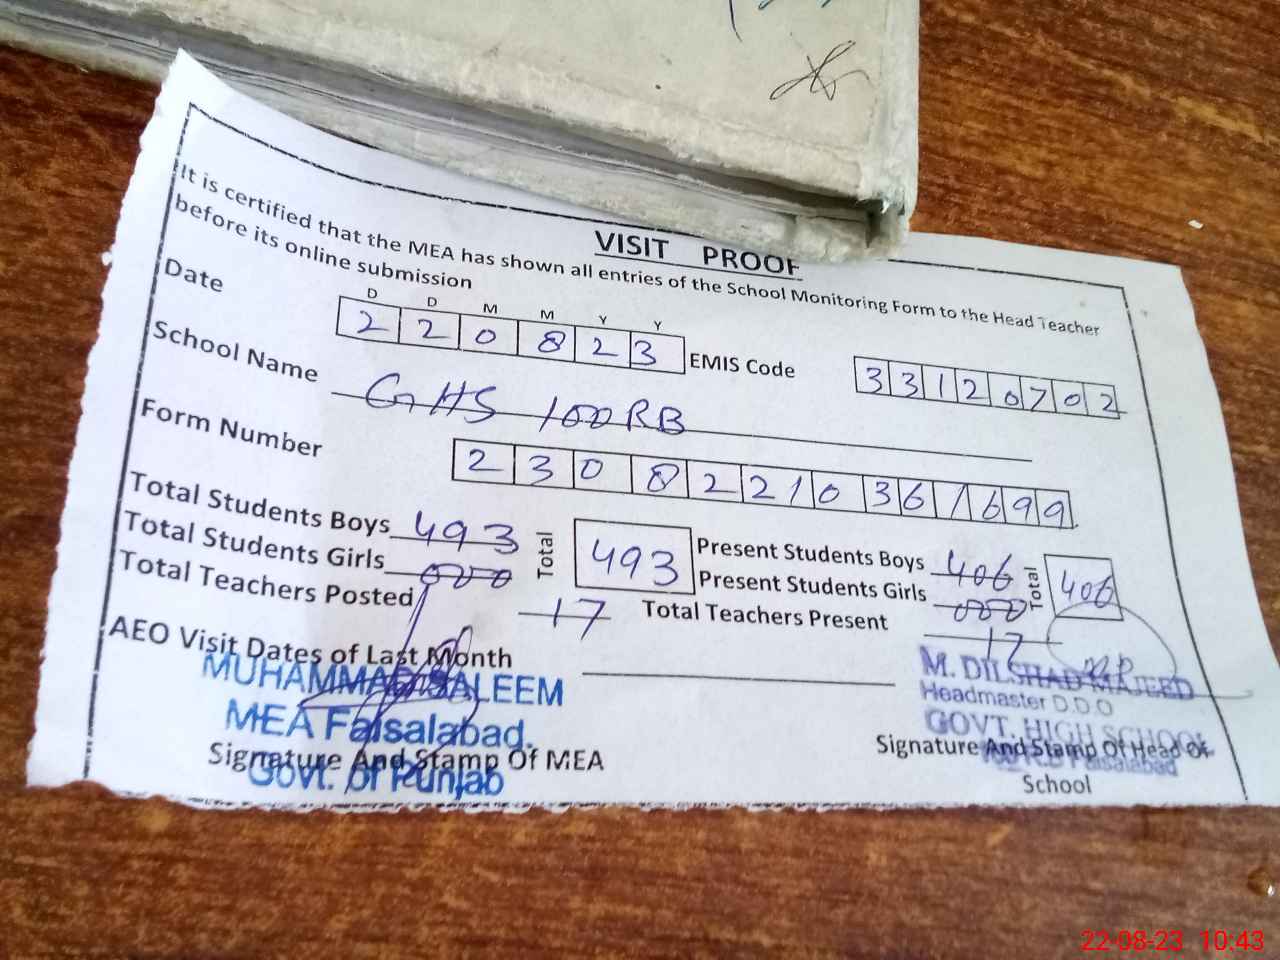 VISIT PROOF
It is certified that the MEA has shown all entries of the School Monitoring Form to the Head Teacher
before its online submission
D D M M Y Y
Date 2 2 0 8 2 3 EMIS Code 3 3 1 2 0 7 0 2
School Name GHS 100 RB
Form Number 2 3 0 8 2 2 1 0 3 6 1 6 9 9
Total Students Boys 493 Total 493 Present Students Boys 406 Total 406
Total Students Girls 000 Present Students Girls 000
Total Teachers Posted 17 Total Teachers Present 17
AEO Visit Dates of Last Month
MUHAMMAD SALEEM
MEA Faisalabad.
Govt. of Punjab
Signature And Stamp Of MEA
M. DILSHAD MAJEED
Headmaster D.D.O
GOVT. HIGH SCHOOL
Faisalabad
Signature And Stamp Of Head Of
School
22-08-23 10:43